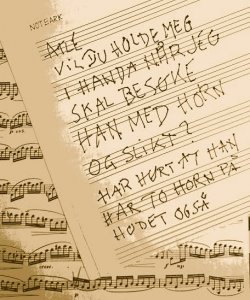 NOTEARK
ATLE
VIL DU HOLDE MEG
I HANDA NÅR JEG
SKAL BESØKE
HAN MED HORN
OG SLIKT?
HAR HØRT AT HAN
HAR TO HORN PÅ
HODET OGSÅ